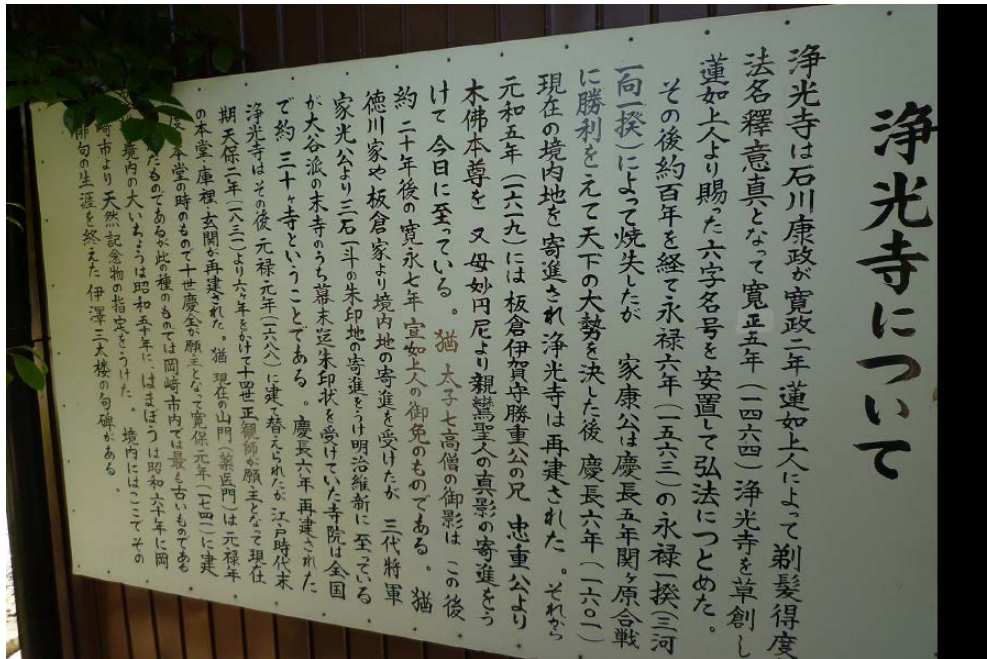 浄光寺について
浄光寺は石川康政が寛政二年蓮如上人によって剃髪得度
法名釋意真となって寛正五年(一四六四)浄光寺を草創し
蓮如上人より賜った六字名号を安置して弘法につとめた。
その後約百年を経て永禄六年(一五六三)の永禄一揆(三河
一向一揆)によって焼失したが 家康公は慶長五年関ヶ原合戦
に勝利をえて天下の大勢を決した後 慶長六年(一六〇一)
現在の境内地を寄進され浄光寺は再建された。それから
元和五年(一六一九)には板倉伊賀守勝重公の兄 忠重公より
木佛本尊を 又 母妙円尼より親鸞聖人の真影の寄進をう
けて 今日に至っている。 猶 太子七高僧の御影は この後
約二十年後の寛永七年 宣如上人の御免のものである。 猶
徳川家や板倉家より境内地の寄進を受けたが 三代将軍
家光公より三石一斗の朱印地の寄進をうけ明治維新に至っている
が大谷派の末寺のうち幕末迄朱印状を受けていた寺院は全国
で約三十ヶ寺ということである。 慶長六年再建された
浄光寺はその後 元禄元年(一六八八)に建て替えられたが江戸時代末
期天保二年(一八三一)より六ヶ年をかけて十四世正観師が願主となって現在
の本堂・庫裡・玄関が再建された。 猶 現在の山門(薬医門)は元禄年
度本堂の時のもので十世慶金が願主となって寛保元年(一七四一)に建
たものであるが此の種のものでは岡崎市内では最も古いものであ
境内の大いちょうは昭和五十年に、はまぼうは昭和六十年に岡
崎市より天然記念物の指定をうけた。 境内にはここでその
俳句の生涯を終えた 伊澤三太楼の句碑がある。